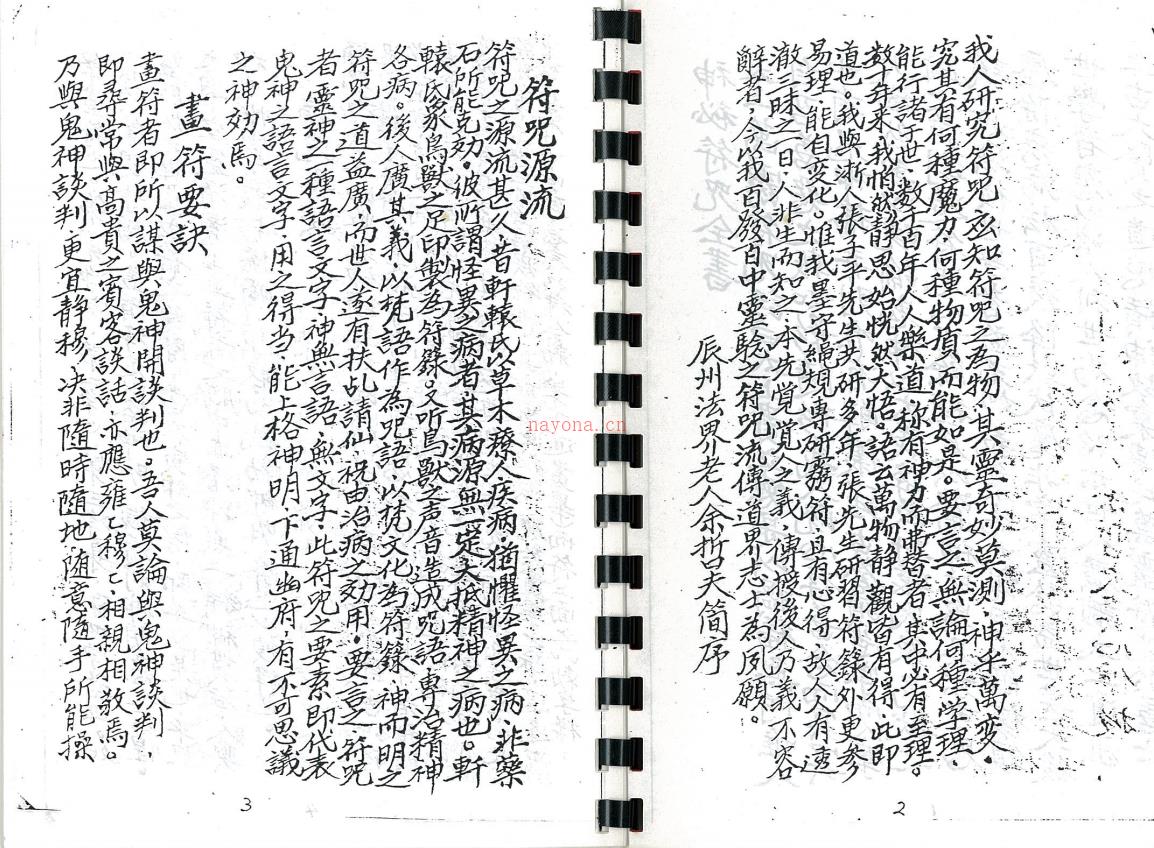 我人研究符咒玄知符咒之為物．其靈奇妙莫測，神乎萬變．
究其有何種魔力．何種物質．而能如是。要言之．無論何種学理．
能行諸于世．数千百年．人人樂道．称有神力而
数十年来．我悄然静思．始恍然大悟．語云萬物静觀皆有得．此即
道也。我與浙人張子平先生共研多年．張先生研習符籙外更参
易理．能自變化。惟我墨守繩規．專研靈符．且有心得．故人人有透
澈三昧之一日．人非生而知之．本先覺覺人之義．傳授後人乃義不容
辭者．今以我百發百中靈驗之符咒流傳道界志士為夙願。
辰州法界老人余哲夫简序
2
符咒源流
符咒之源流甚久．昔軒轅氏以草木療人疾病．猶懼怪異之病．非藥
石所能克効。彼所謂怪異之病者．其病源無一定．大抵精神之病也。軒
轅氏象鳥獸之足印製為符籙。又听鳥獸之声音造成咒語．專治精神
各病。後人廣其義．以梵語作為咒語．以梵文化為符籙．神而明之
符咒之道益廣．而世人遂有扶乩請仙．祝由治病之効用。要言之．符咒
者靈神之一種語言文字．神無言語．無文字．此符咒之要素即代表
鬼神之語言文字．用之得当．能上格神明．下通幽府．有不可思議
之神効焉。
畫符要訣
畫符者即所以謀與鬼神開談判也。吾人莫論與鬼神談判．
即尋常與高貴之賓客談話．亦應雍〻穆〻．相親相敬焉。
乃與鬼神談判更宜静穆．决非隨時隨地．随意隨手所能操
3
nayona.cn